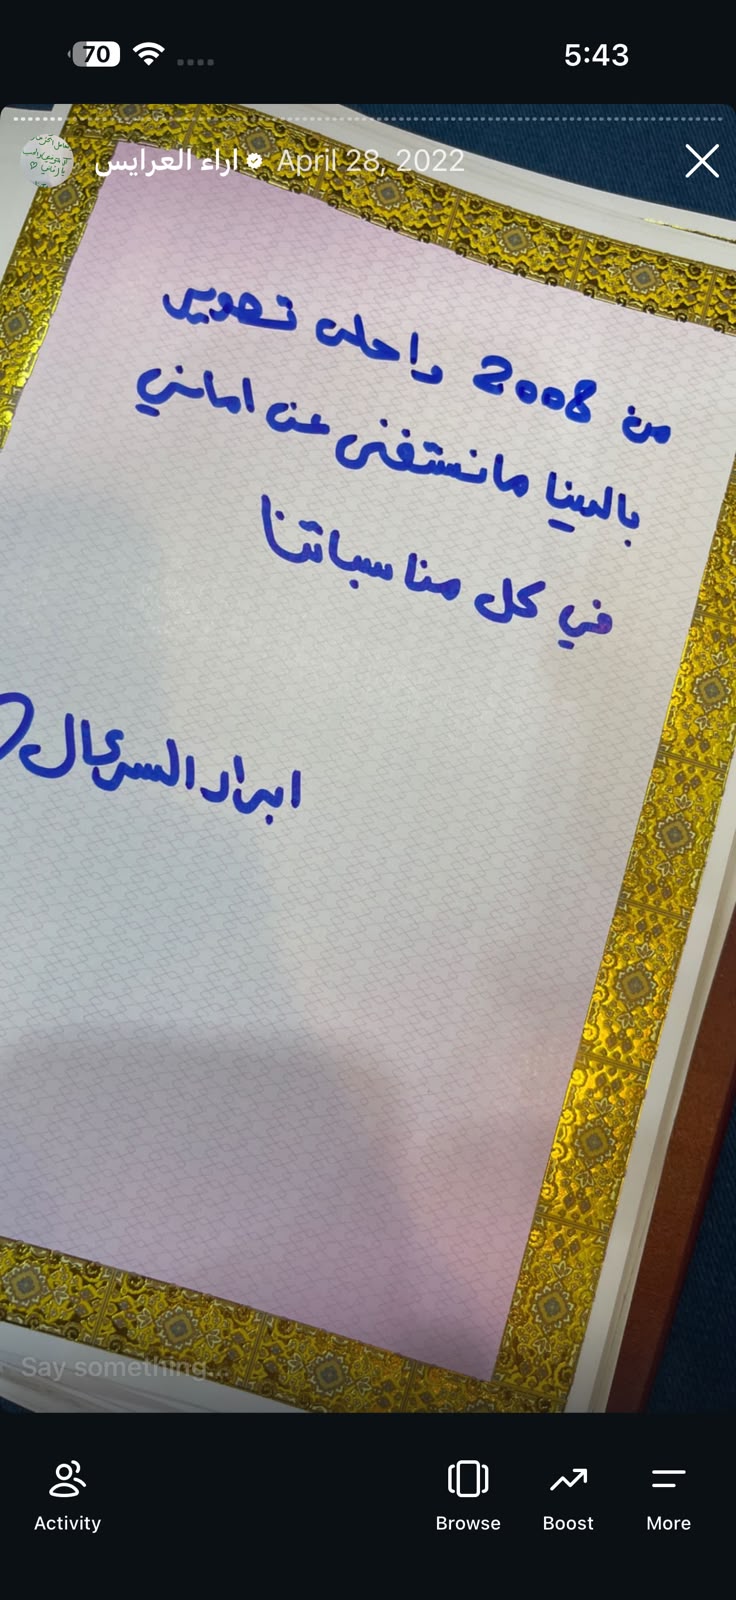 70
5:43
اراء العرايس April 28, 2022
من 2008 واحلى تصوير
بالدنيا مانستغنى عن اماني
في كل مناسباتنا
ابرار
Say something...
Activity
Browse
Boost
More